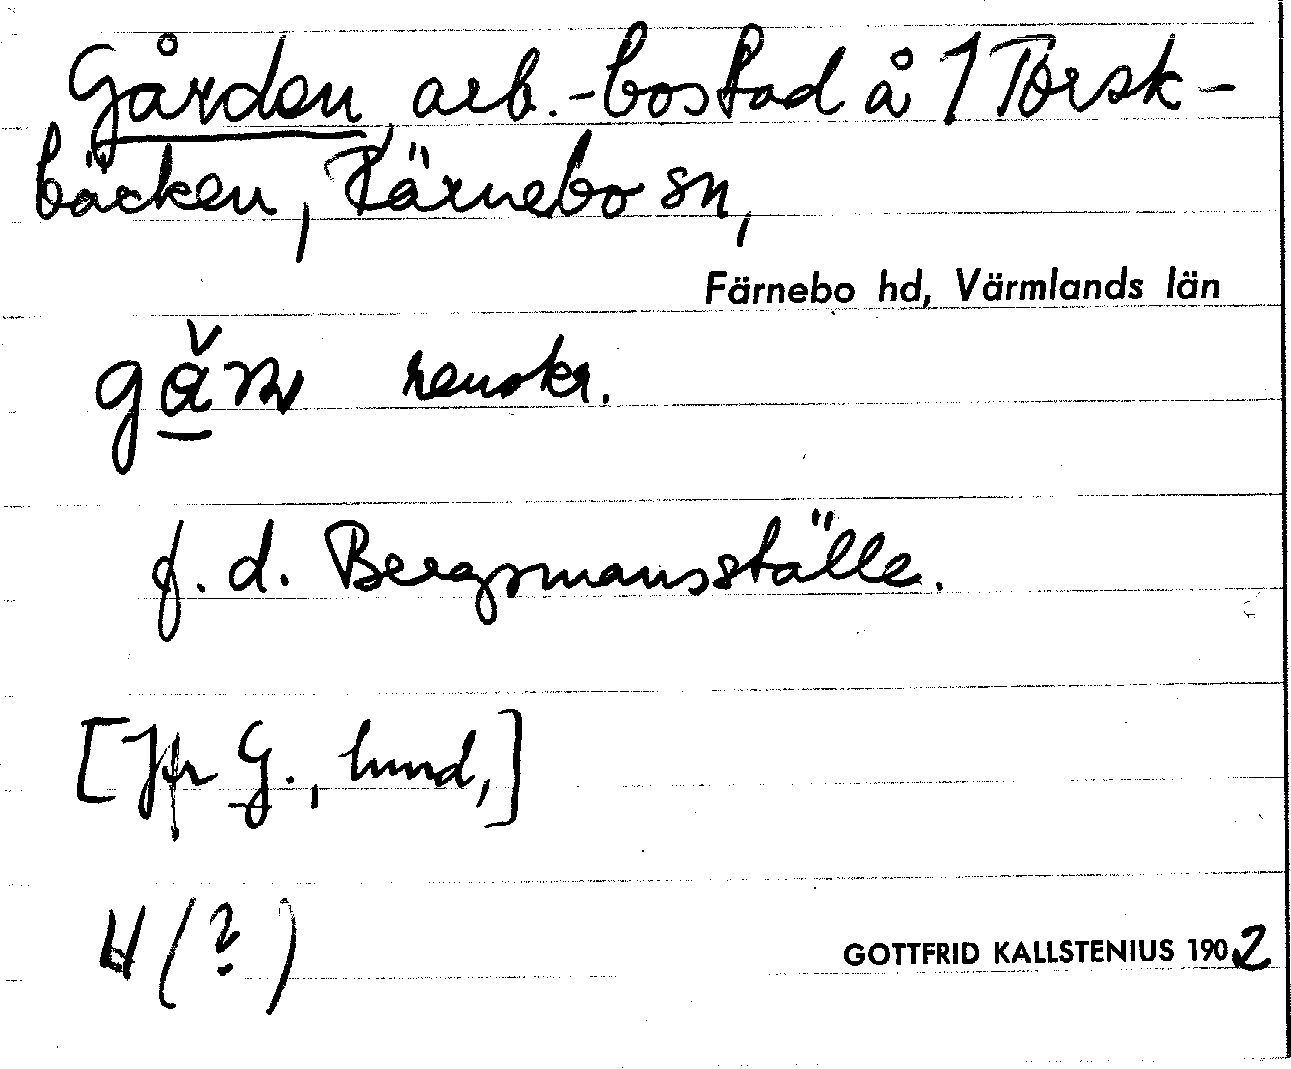 Gården, arb.-bostad å 1 Torsk-
bäcken, Färnebo sn,
Färnebo hd, Värmlands län
renskr.
f. d. Bergsmansställe.
[Jfr G., lund,]
H (?)
GOTTFRID KALLSTENIUS 1902